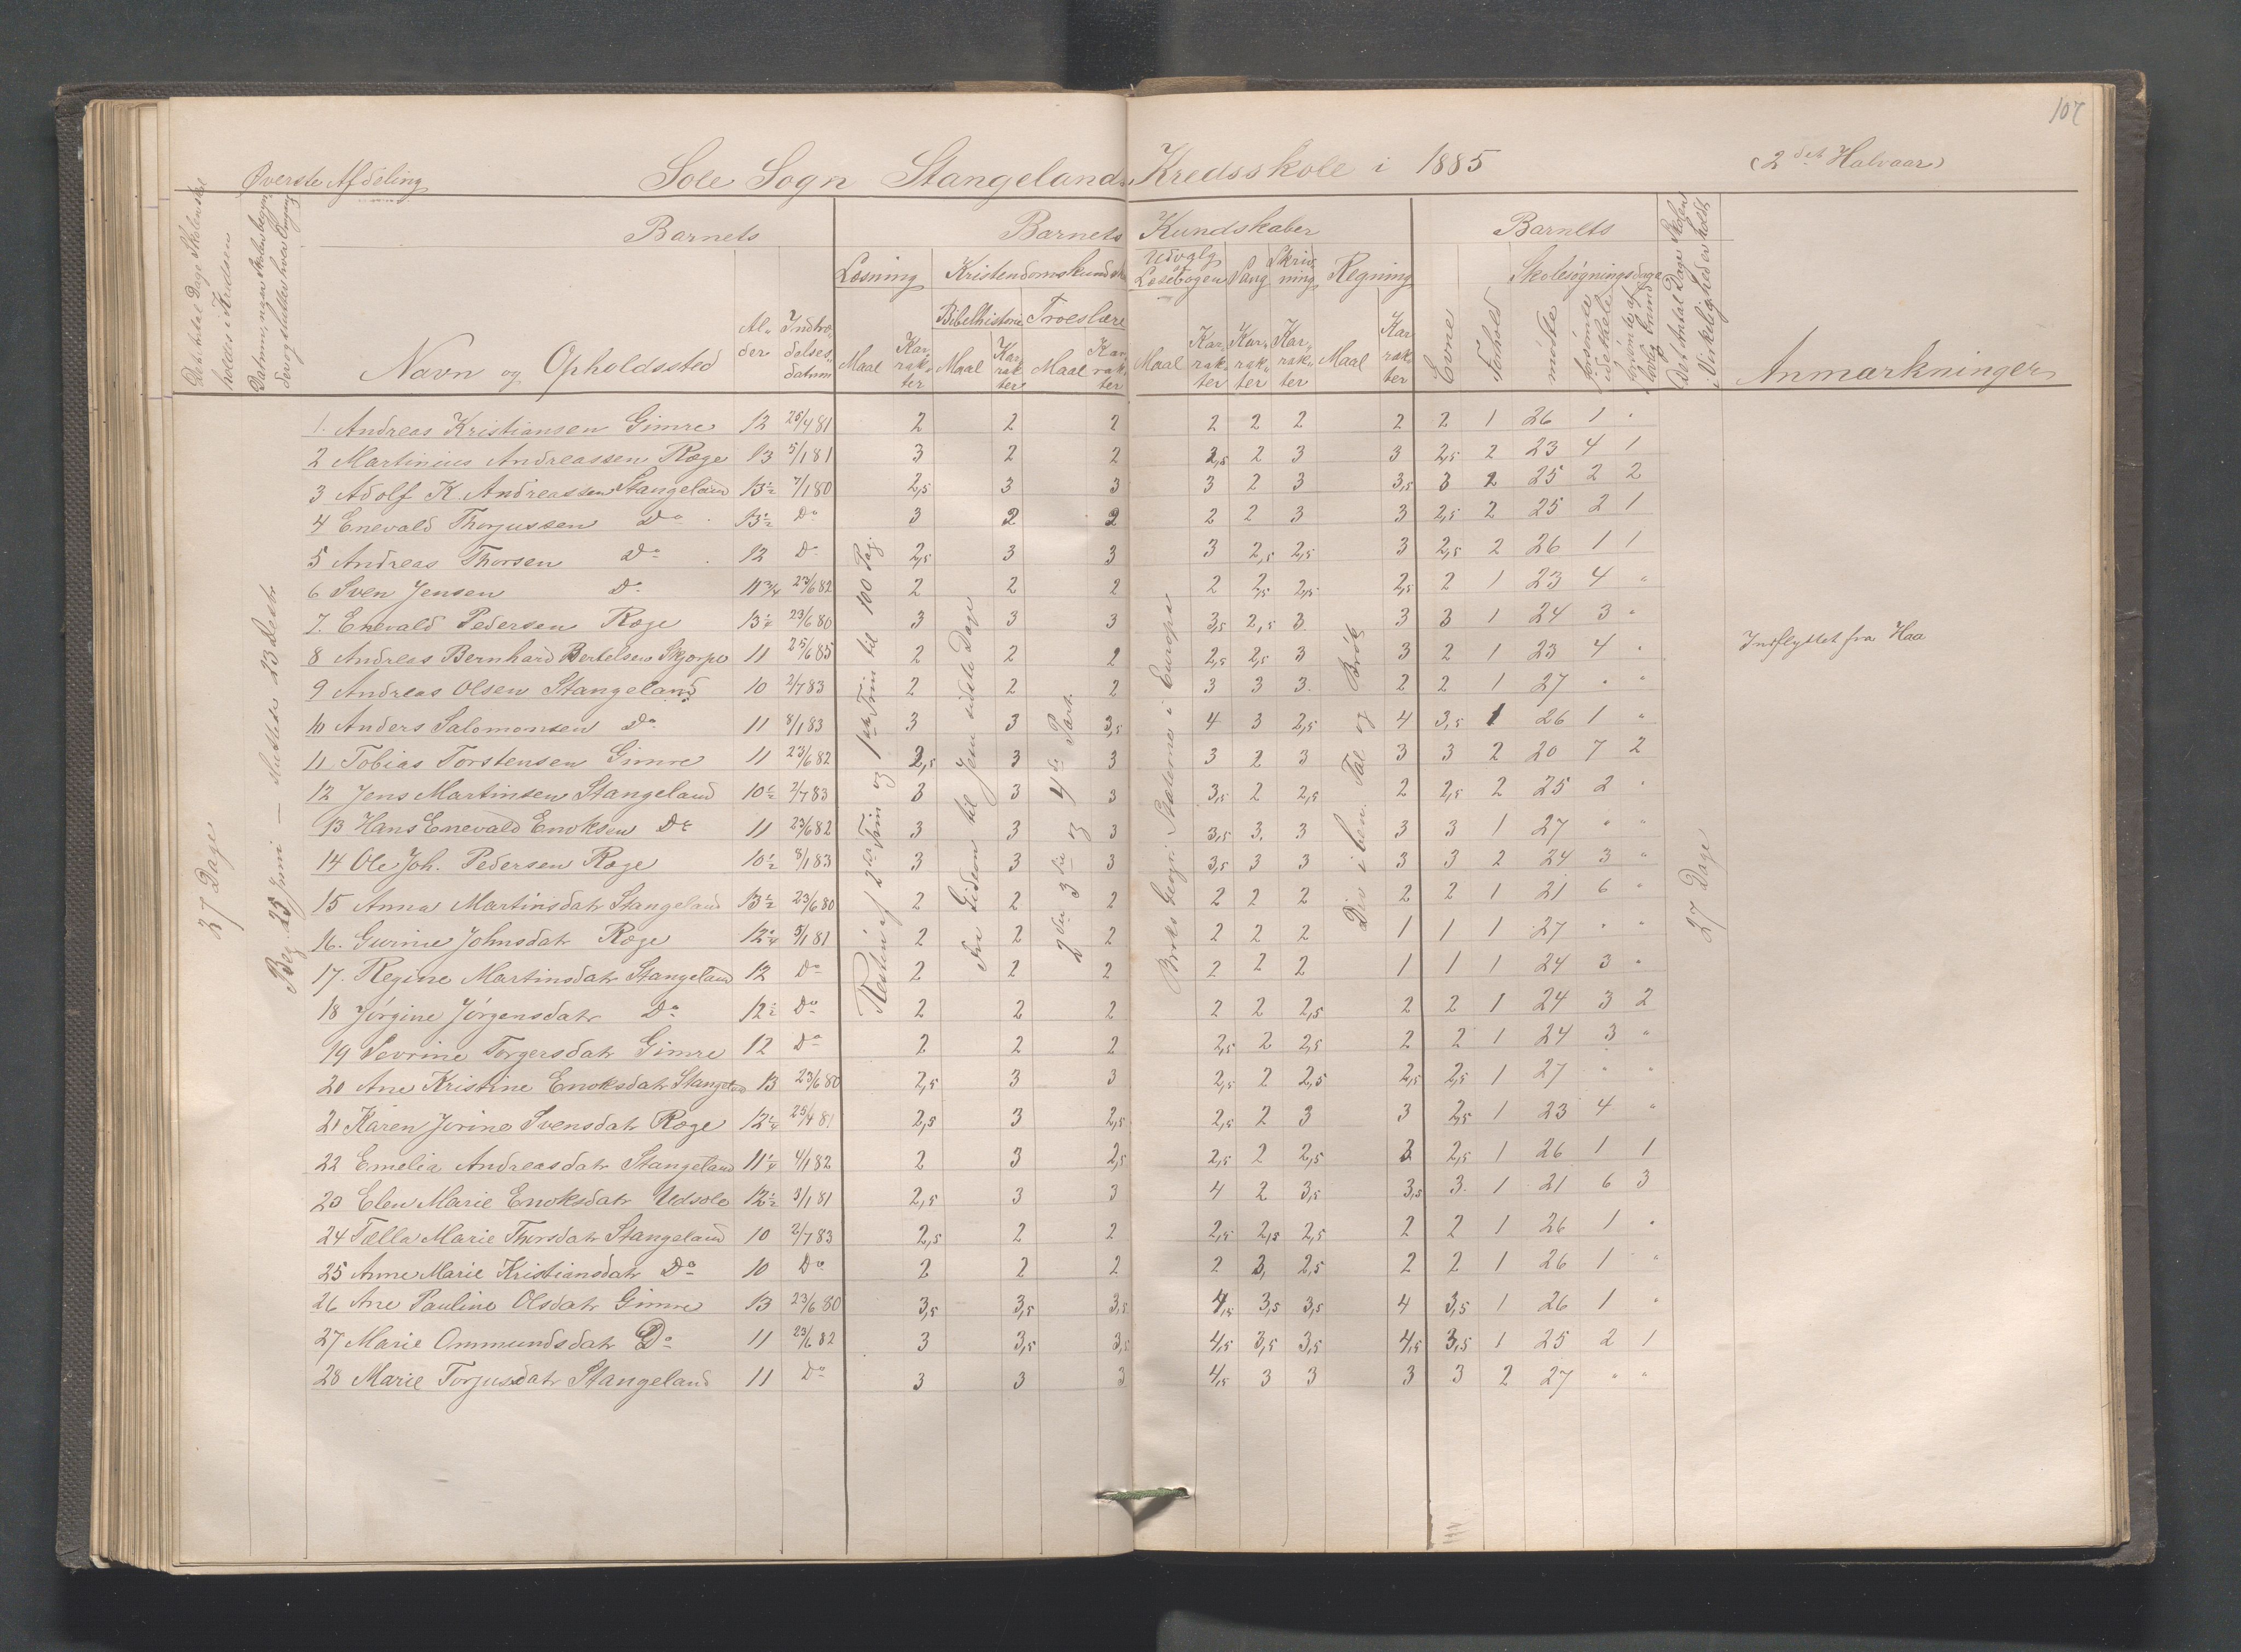 107
Øverste Afdeling Sole Sogn Stangelands Kredsskole i 1885 (2det Halvaar)
Barnets Barnets Kundskaber Barnets
Læsning Kristendomskundskab Udvalg Læsebogen Sang Skrivning Regning Skolesøgningsdage
Bibelhistorie Troeslære
Navn og Opholdssted Alder Indtrædelsesdatum Maal Karrakter Maal Karrakter Maal Karrakter Maal Karrakter Karrakter Karrakter Maal Karrakter Evne Forhold mødte forsømte i det hele forsømte af lovlig Grund Det Antal Dage Skolen i Virkelighed er holdt Anmærkninger
37 Dage
Beg. 25 Juni — sluttede 23 Decbr
Resten af 2det Trin og 1ste Trin til 100 Pag.
Fra Gideon til Jesu sidste Dage
2den 3die og 4de Part.
Brøks Geogr. Staterne i Europa
Div i ben. Tal og Brøk
27 Dage
1. Andreas Kristiansen Gimre 12 25/4 81 2 2 2 2 2 2 2 2 1 26 1 "
2 Martinius Andreassen Røge 13 5/1 81 3 2 2 2,5 2 3 3 2,5 2 23 4 1
3 Adolf K. Andreassen Stangeland 13 1/2 7/1 80 2,5 3 3 3 2 3 3,5 3 2 25 2 2
4 Enevald Thorjussen Do 13 1/2 Do 3 2 2 2 2 3 3 2,5 2 25 2 1
5 Andreas Thorsen Do 12 Do 2,5 3 3 3 2,5 2,5 3 2,5 2 26 1 1
6 Sven Jensen Do 11 3/4 23/6 82 2 2 2 2 2,5 2,5 2,5 2 1 23 4 "
7. Enevald Pedersen Røge 13 1/4 23/6 80 3 3 3 3,5 2,5 3 3 3 1 24 3 "
8 Andreas Bernhard Bertelsen Skjorpe 11 25/6 85 2 2 2 2,5 2,5 3 3 2 1 23 4 " Indflyttet fra Haa
9 Andreas Olsen Stangeland 10 2/7 83 2 2 2 3 3 3 2 2 1 27 " "
10 Anders Salomonsen Do 11 8/1 83 3 3 3,5 4 3 2,5 4 3,5 1 26 1 "
11 Tobias Torstensen Gimre 11 23/6 82 2,5 3 3 3 2 3 3 3 2 20 7 2
12 Jens Martinsen Stangeland 10 1/2 2/7 83 3 3 3 3,5 2 2,5 2 2,5 2 25 2 "
13 Hans Enevald Enoksen Do 11 23/6 82 3 3 3 3,5 3. 3 3 3 1 27 " "
14 Ole Joh. Pedersen Røge 10 1/2 8/1 83 3 3 3 3,5 3 3 3 3 2 24 3 "
15 Anna Martinsdatr Stangeland 13 1/2 23/6 80 2 2 2 2 2 2 2 2 1 21 6 "
16. Gurine Johnsdatr Røge 12 3/4 5/1 81 2 2 2 2 2 2 1 1 1 27 " "
17. Regine Martinsdatr Stangeland 12 Do 2 2 2 2 2 2 1 1 1 24 3 "
18 Jørgine Jørgensdatr Do 12 1/2 Do 2 2 2 2 2 2,5 2 2 1 24 3 2
19 Sevrine Torgersdatr Gimre 12 Do 2 2 2 2,5 2 2,5 2 2 1 24 3 "
20 Ane Kristine Enoksdatr Stangeland 13 23/6 80 2,5 3 3 2,5 2 2,5 2,5 2,5 1 27 " "
21 Karen Jorine Svensdatr Røge 12 1/4 25/4 81 2,5 3 2,5 2,5 2 3 3 2,5 1 23 4 "
22 Emelia Andreasdatr Stangeland 11 1/4 4/1 82 2 3 2,5 2,5 2 2,5 2 2,5 1 26 1 1
23 Elen Marie Enoksdatr Udsole 12 1/2 3/1 81 2,5 3 3 4 2 3,5 3,5 3. 1 21 6 3
24 Tælla Marie Thorsdatr Stangeland 10 2/7 83 2,5 2 2 2,5 2,5 2,5 2 2 1 26 1 "
25 Anne Marie Kristiansdatr Do 10 Do 2 2 2 2 3, 2,5 2 2 1 26 1 "
26 Ane Pauline Olsdatr Gimre 13 23/6 80 3,5 3,5 3,5 4,5 3,5 3,5 4 3,5 1 26 1 "
27 Marie Ommundsdatr Do 11 23/6 82 3 3,5 3,5 4,5 3,5 3,5 4,5 3,5 1 25 2 1
28 Marie Torjusdatr Stangeland 11 Do 3 3 3 4,5 3 3 3 3 2 27 " "